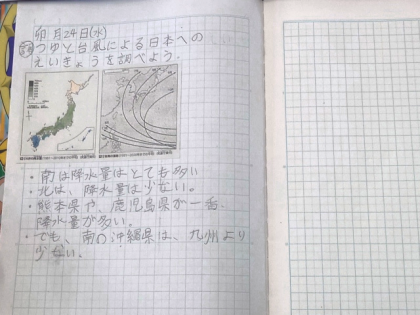 月24日(水)
つゆと台風による日本への
えいきょうを調べよう.
・南は降水量はとても多い
・北は、降水量は少ない。
・熊本県や、鹿児島県が一番、
降水量が多い。
・でも、南の沖縄県は、九州より
少ない。